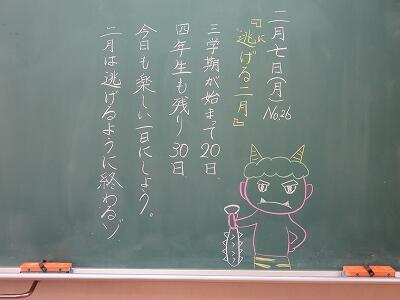 二月七日(月) No.26
『逃げる二月』
に
三学期が始まって20日
四年生も残り30日
今日も楽しい一日にしよう。
二月は逃げるように終わるゾ